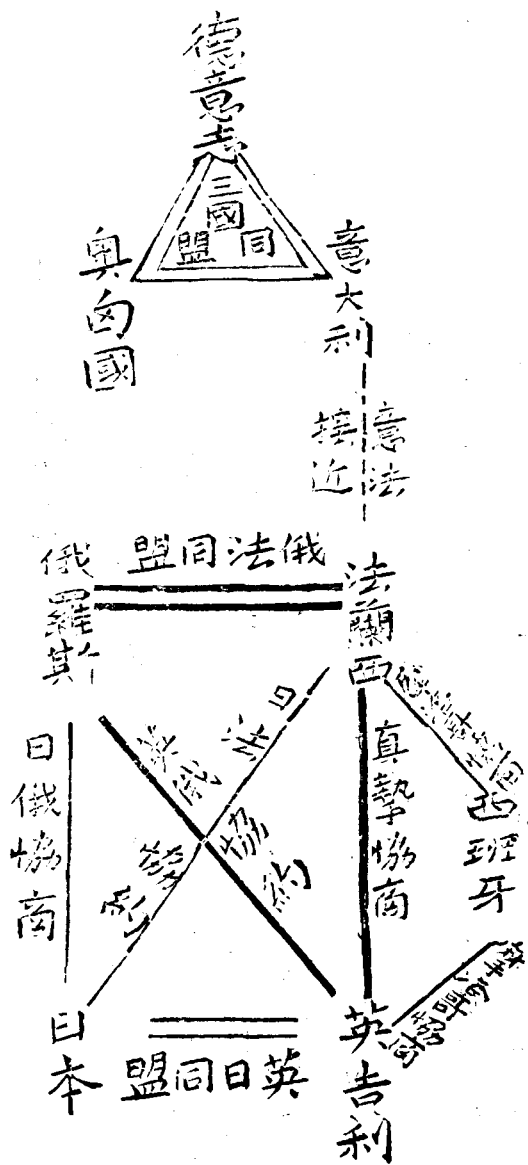 德意志
三國同盟
奧匈國
意大利
意法接近
俄法同盟
俄羅斯
法蘭西
日法
英俄協約
日俄協商
真摯協商
西班牙
協商
日本
英日同盟
英吉利